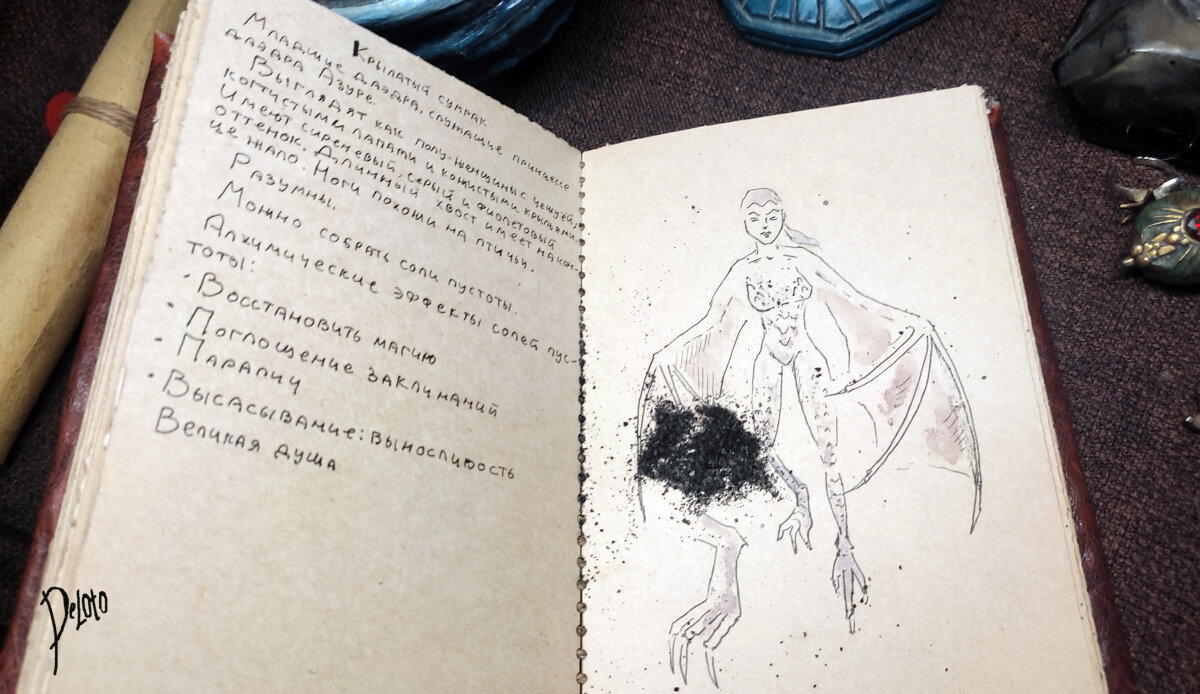 Крылатый сумрак
Младшие даэдра, служащие принцессе
даэдра Азуре.
Выглядят как полу-женщины с чешуёй,
когтистыми лапами и кожистыми крыльями.
Имеют сиреневый, серый и фиолетовый
оттенок. Длинный хвост имеет на кон-
це жало. Ноги похожи на птичьи.
Разумны.
Можно собрать соли пустоты.
Алхимические эффекты солей пус-
тоты:
• Восстановить магию
• Поглощение заклинаний
• Паралич
• Высасывание: выносливость
Великая душа
DeLoto